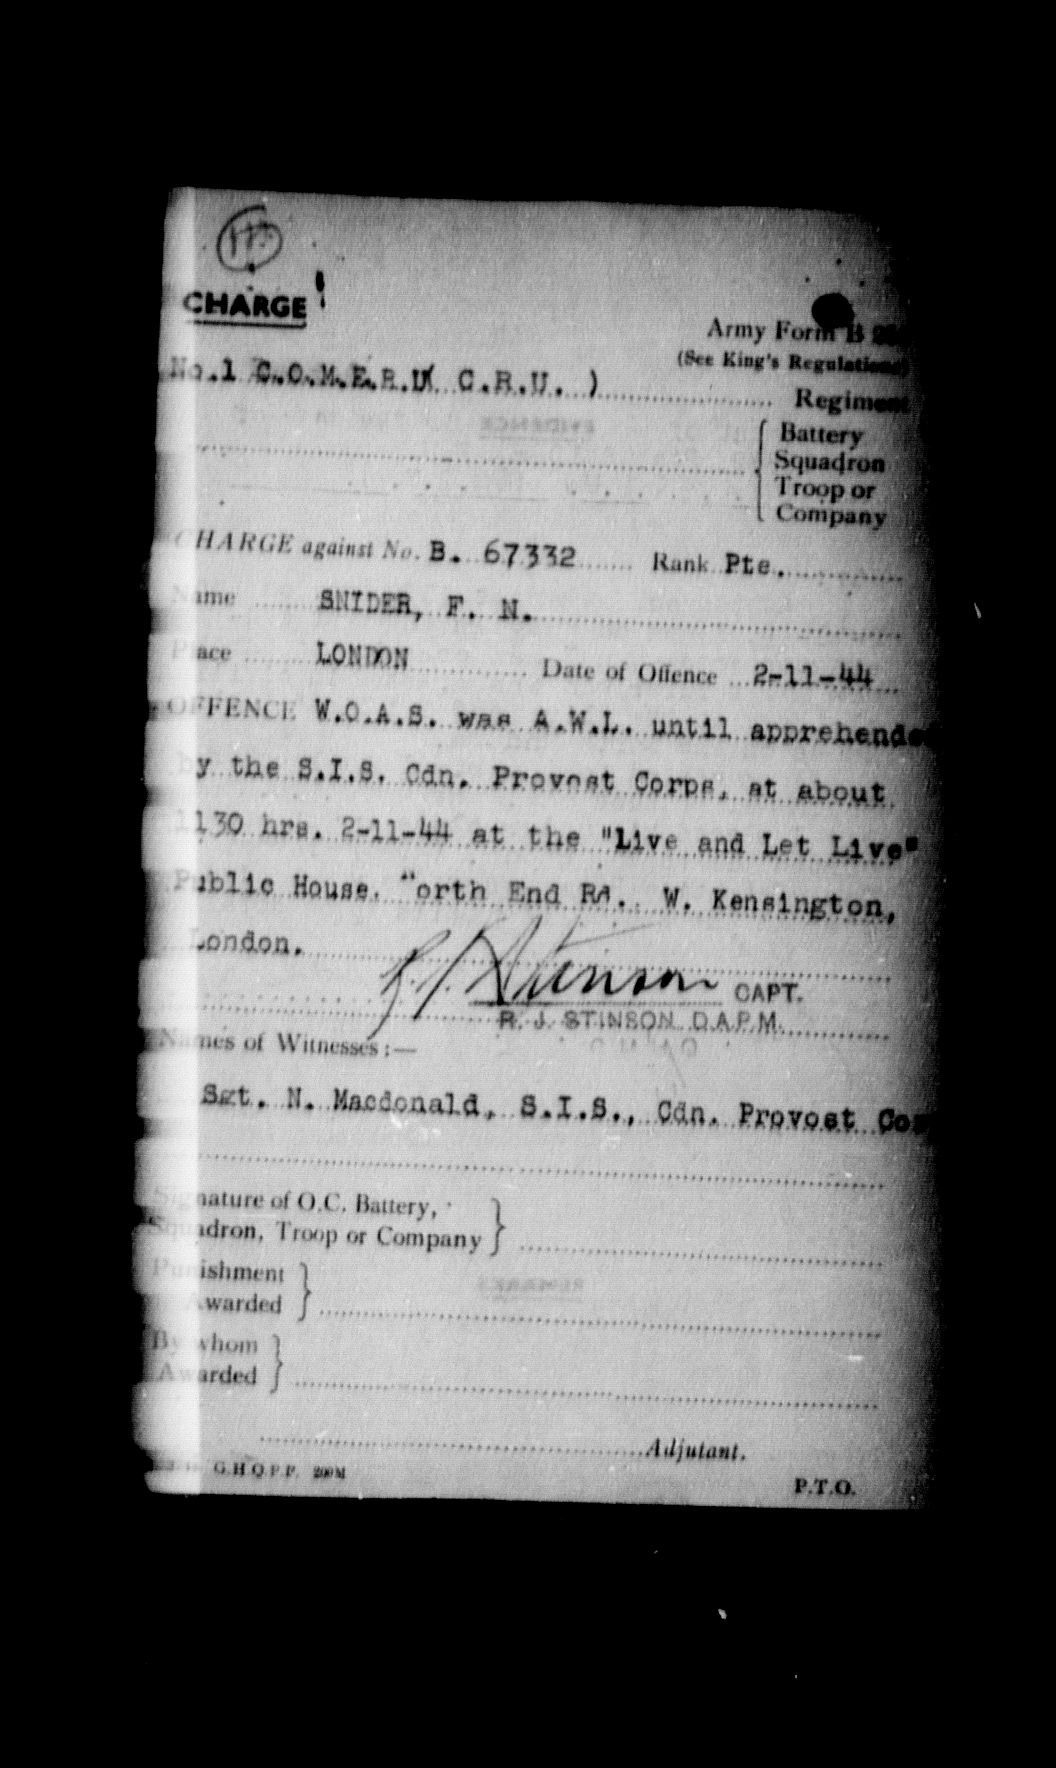 CHARGE
Army Form B
(See King's Regulations)
No.1 C.O.M.E.R.U( C.R.U. ) Regiment
Battery
Squadron
Troop or
Company
CHARGE against No. B. 67332 Rank Pte.
Name SNIDER, F. N.
Place LONDON Date of Offence 2-11-44
OFFENCE W.O.A.S. was A.W.L. until apprehende
by the S.I.S. Cdn. Provost Corps, at about
1130 hrs. 2-11-44 at the "Live and Let Live"
Public House. "orth End Rd. W. Kensington,
London.
R. J. Stinson CAPT.
R. J. STINSON D.A.P.M.
Names of Witnesses:—
Sgt. N. Macdonald, S.I.S., Cdn. Provost Cor
Signature of O.C. Battery,
Squadron, Troop or Company
Punishment
Awarded
By whom
Awarded
Adjutant.
G.H.Q.P.P. 200M
P.T.O.